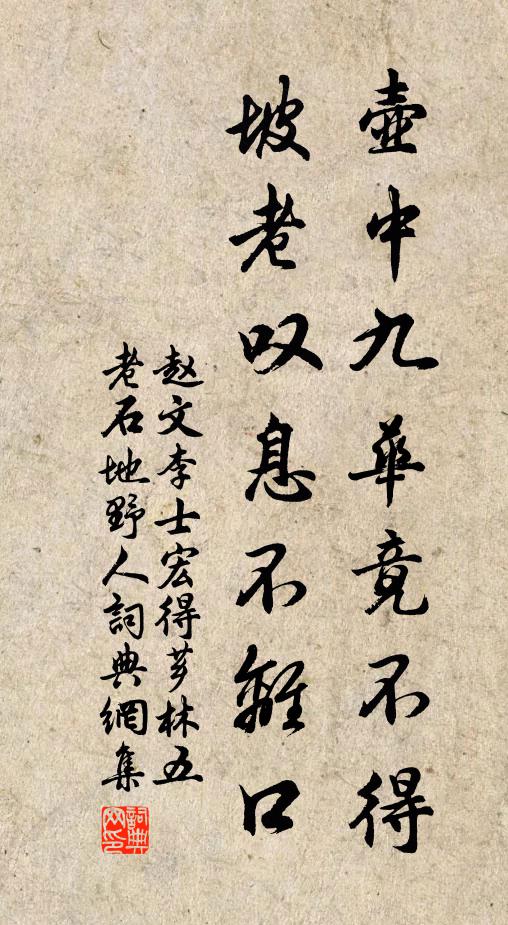 壺中九華竟不得
坡老叹息不離口
赵文李士宏得芗林五
老石地野人詞典網集
詞典
网印